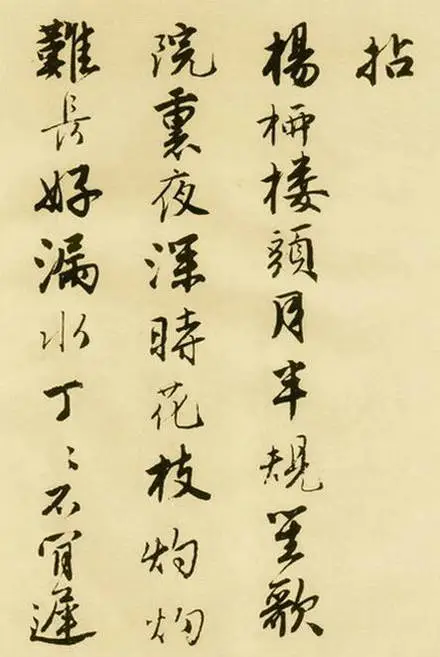 拈
楊栁楼頭月半規笙歌
院裏夜深時花枝灼灼
難長好漏水丁〻不肯遲